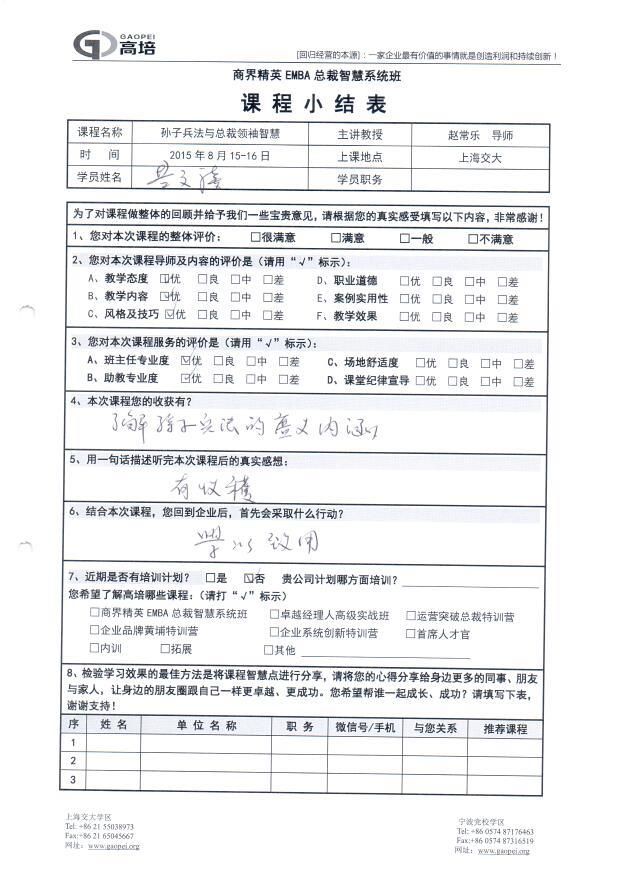 GAOPEI
高培
[回归经营的本源]：一家企业最有价值的事情就是创造利润和持续创新！
商界精英 EMBA 总裁智慧系统班
课程小结表
课程名称 孙子兵法与总裁领袖智慧 主讲教授 赵常乐 导师
时 间 2015 年 8 月 15-16 日 上课地点 上海交大
学员姓名 学员职务
为了对课程做整体的回顾并给予我们一些宝贵意见，请根据您的真实感受填写以下内容，非常感谢！
1、您对本次课程的整体评价： □很满意 □满意 □一般 □不满意
2、您对本次课程导师及内容的评价是（请用“√”标示）：
A、教学态度 ☑优 □良 □中 □差 D、职业道德 □优 □良 □中 □差
B、教学内容 ☑优 □良 □中 □差 E、案例实用性 □优 □良 □中 □差
C、风格及技巧 ☑优 □良 □中 □差 F、教学效果 □优 □良 □中 □差
3、您对本次课程服务的评价是（请用“√”标示）：
A、班主任专业度 ☑优 □良 □中 □差 C、场地舒适度 □优 □良 □中 □差
B、助教专业度 ☑优 □良 □中 □差 D、课堂纪律宣导 □优 □良 □中 □差
4、本次课程您的收获有？
了解孙子兵法的意义内涵
5、用一句话描述听完本次课程后的真实感想：
有收穫
6、结合本次课程，您回到企业后，首先会采取什么行动？
學以致用
7、近期是否有培训计划？ □是 ☑否 贵公司计划哪方面培训？
您希望了解高培哪些课程：（请打“√”标示）
□商界精英 EMBA 总裁智慧系统班 □卓越经理人高级实战班 □运营突破总裁特训营
□企业品牌黄埔特训营 □企业系统创新特训营 □首席人才官
□内训 □拓展 □其他
8、检验学习效果的最佳方法是将课程智慧点进行分享，请将您的心得分享给身边更多的同事、朋友
与家人，让身边的朋友圈跟自己一样更卓越、更成功。您希望帮谁一起成长、成功？请填写下表，
谢谢支持！
序 姓 名 单 位 名 称 职 务 微信号/手机 与您关系 推荐课程
1
2
3
上海交大学区
Tel: +86 21 55038973
Fax:+86 21 65045667
网址：www.gaopei.org
宁波党校学区
Tel: +86 0574 87176463
Fax:+86 0574 87316519
网址：www.gaopei.org